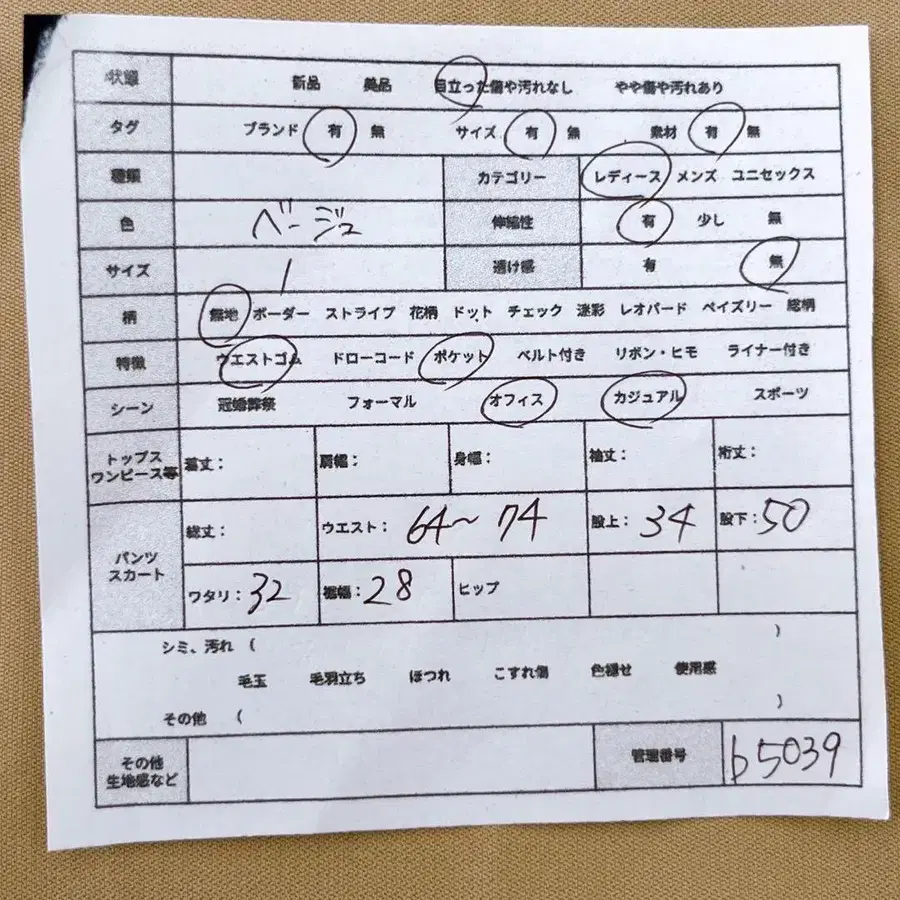 状態 新品 美品 目立った傷や汚れなし やや傷や汚れあり
タグ ブランド 有 無 サイズ 有 無 素材 有 無
種類 カテゴリー レディース メンズ ユニセックス
色 ベージュ 伸縮性 有 少し 無
サイズ 1 透け感 有 無
柄 無地 ボーダー ストライプ 花柄 ドット チェック 迷彩 レオパード ペイズリー 総柄
特徴 ウエストゴム ドローコード ポケット ベルト付き リボン・ヒモ ライナー付き
シーン 冠婚葬祭 フォーマル オフィス カジュアル スポーツ
トップス
ワンピース等 着丈: 肩幅: 身幅: 袖丈: 裄丈:
パンツ
スカート 総丈: ウエスト: 64〜74 股上: 34 股下: 50
ワタリ: 32 裾幅: 28 ヒップ
シミ、汚れ ( )
毛玉 毛羽立ち ほつれ こすれ傷 色褪せ 使用感
その他 ( )
その他
生地感など 管理番号 b5039